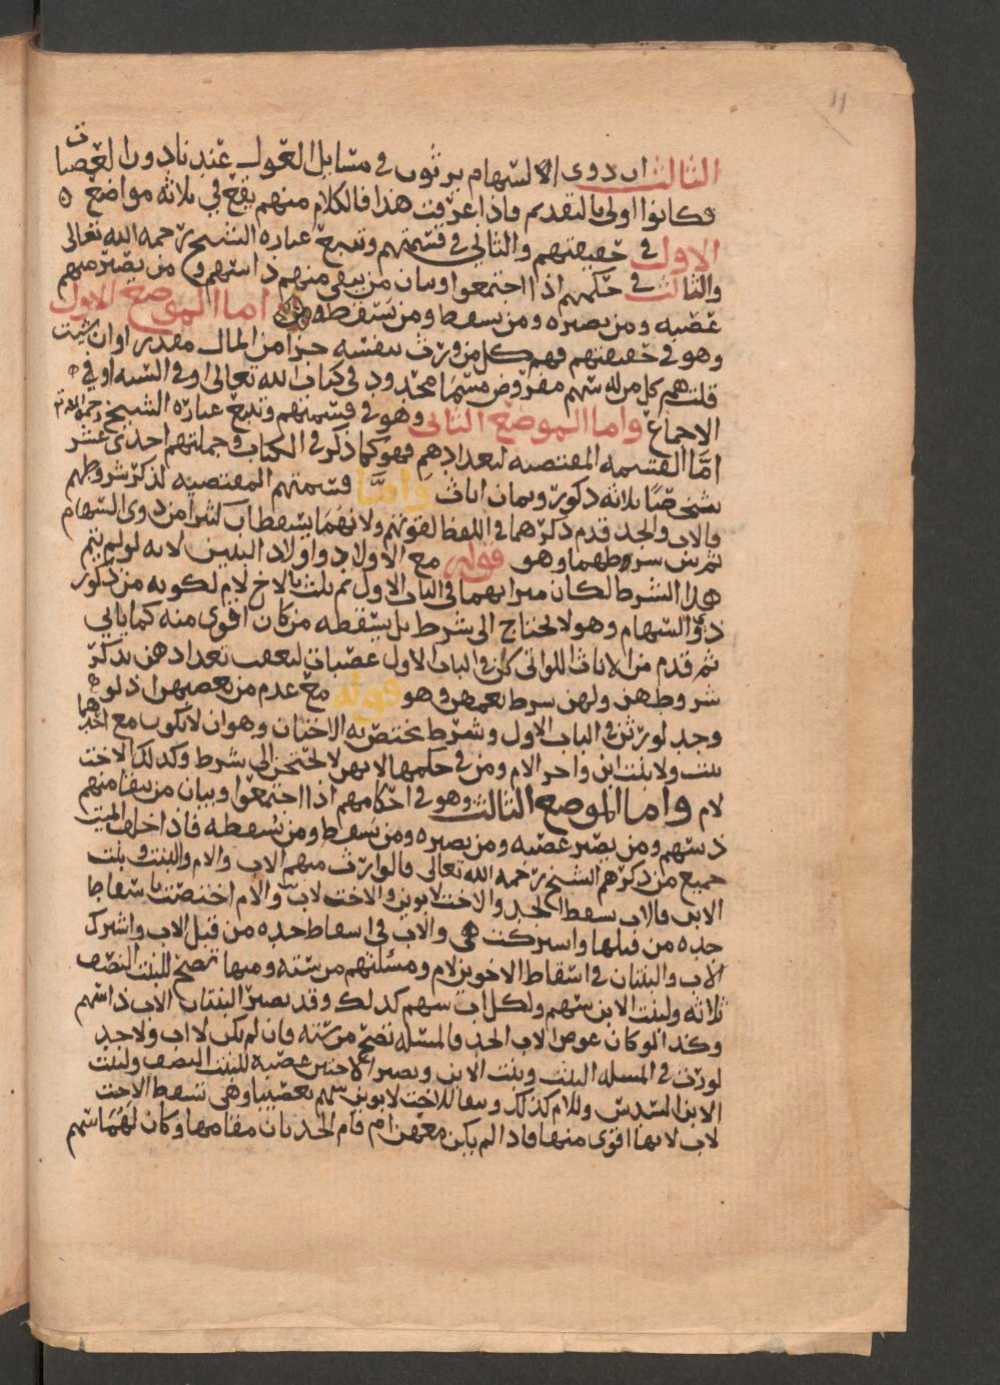 11
الثالث ان ذوي السهام يرثون في مسايل العول عند نا دون العصبات
فكانوا اولى بالتقديم فاذا عرفت هذا فالكلام منهم يقع في ثلاثة مواضع ٥
الاول في حقيقتهم والثاني في قسمتهم وتتبع عبارة الشيخ رحمه الله تعالى
والثالث في حكمهم اذا اجتمعوا وبيان من يبقى منهم ذا سهم ومن يصير منهم
عصبه ومن يصيره ومن يسقط ومن يسقطه اما الموضع الاول
وهو في حقيقتهم فهم كل من ورث بنفسه جزا من المال مقدر اوان شيت
قلت هم كل من له سهم مفروض مسما محدود في كتاب الله تعالى او في السنه او في
الاجماع واما الموضع الثاني وهو في قسمتهم وتتبع عبارة الشيخ رحمه الله
امّا القسمه المقتضيه لتعدادهم فهو كما ذكر في الكتاب وجملتهم احدى عشر
شخصًا ثلاثه ذكور وثمان اناث وامّا قسمتهم المقتضيه لذكر شروطهم
فالاب والجد قدم ذكرهما في اللفظ لقوتهم ولانهما يسقطان كثيرا من ذوي السهام
ثم بين شروطهما وهو قوله مع الاولاد واولاد البنين لانه لو لم يتم
هذا الشرط لكان ميراثهما في الباب الاول ثم ثلث بالاخ لام لكونه من ذكور
ذوي السهام وهو لا يحتاج الى شرط بل يسقطه من كان اقوى منه كما ياتي
ثم قدم من الاناث اللواتي كن في الباب الاول عصبات لتعقب تعدادهن بذكر
شروطهن ولهن شرط يعمهن وهو قوله مع عدم من يعصبهن اذ لو
وجد لورثن في الباب الاول وشرط يختص به الاختان وهو ان لا يكون مع احدهما
بنت ولا بنت ابن واخر الام ومن في حكمها لانهن لا يحتجن الى شرط وكذلك الاخت
لام واما الموضع الثالث وهو في احكامهم اذا اجتمعوا وبيان من يبقا منهم
ذ سهم ومن يصير عصبه ومن يصيره ومن يسقط ومن يسقطه فاذا خلف الميت
جميع من ذكرهم الشيخ رحمه الله تعالى فالوارث منهم الاب والام والبنت وبنت
الابن فالاب سقط الجد والاخت لابوين والاخت لاب والام اختصت باسقاطها
جده من قبلها واشتركت هي والاب في اسقاط جده من قبل الاب واشترك
الاب والبنتان في اسقاط الاخوين لام ومسئلتهم من سته ومنها تصح للبنت النصف
ثلاثه ولبنت الابن سهم ولكل اب سهم كذلك وقد تصير البنتان الاب ذا سهم
وكذا لو كان عوض الاب الجد فالمسئله تصح من سته فان لم يكن لا اب ولا جد
لورث في المسئله البنت وبنت الابن وتصير الاختين عصبه للبنت النصف ولبنت
الابن السدس وللام كذلك ويبقا للاخت لابوين سهم بعصبتها وهي تسقط الاخت
لاب لانها اقوى منها فاذا لم يكن معهن ام قام الجدتان مقامها وكان لهما سهم